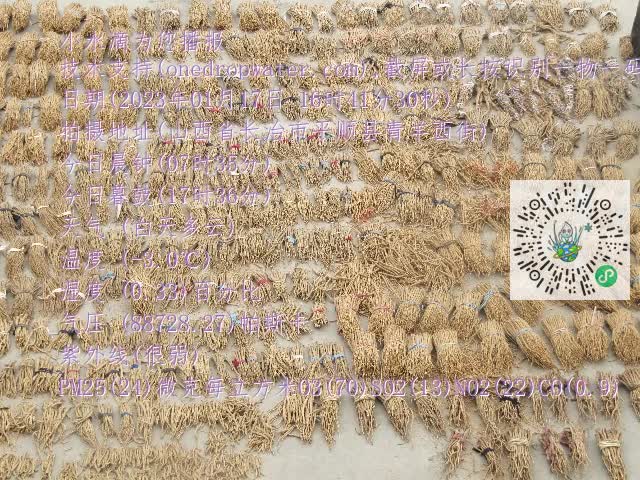 小水滴为您播报
技术支持(onedropwater.com),截屏或长按识别一物一码
日期(2023年01月17日 16时11分36秒)
拍摄地址(山西省长治市平顺县青羊西街)
今日晨钟(07时35分)
今日暮鼓(17时36分)
天气 (白天多云)
温度 (-3.0℃)
湿度 (0.33)百分比
气压 (88728.27)帕斯卡
紫外线(很弱)
PM25(24)微克每立方米O3(70)SO2(13)NO2(22)CO(0.9)